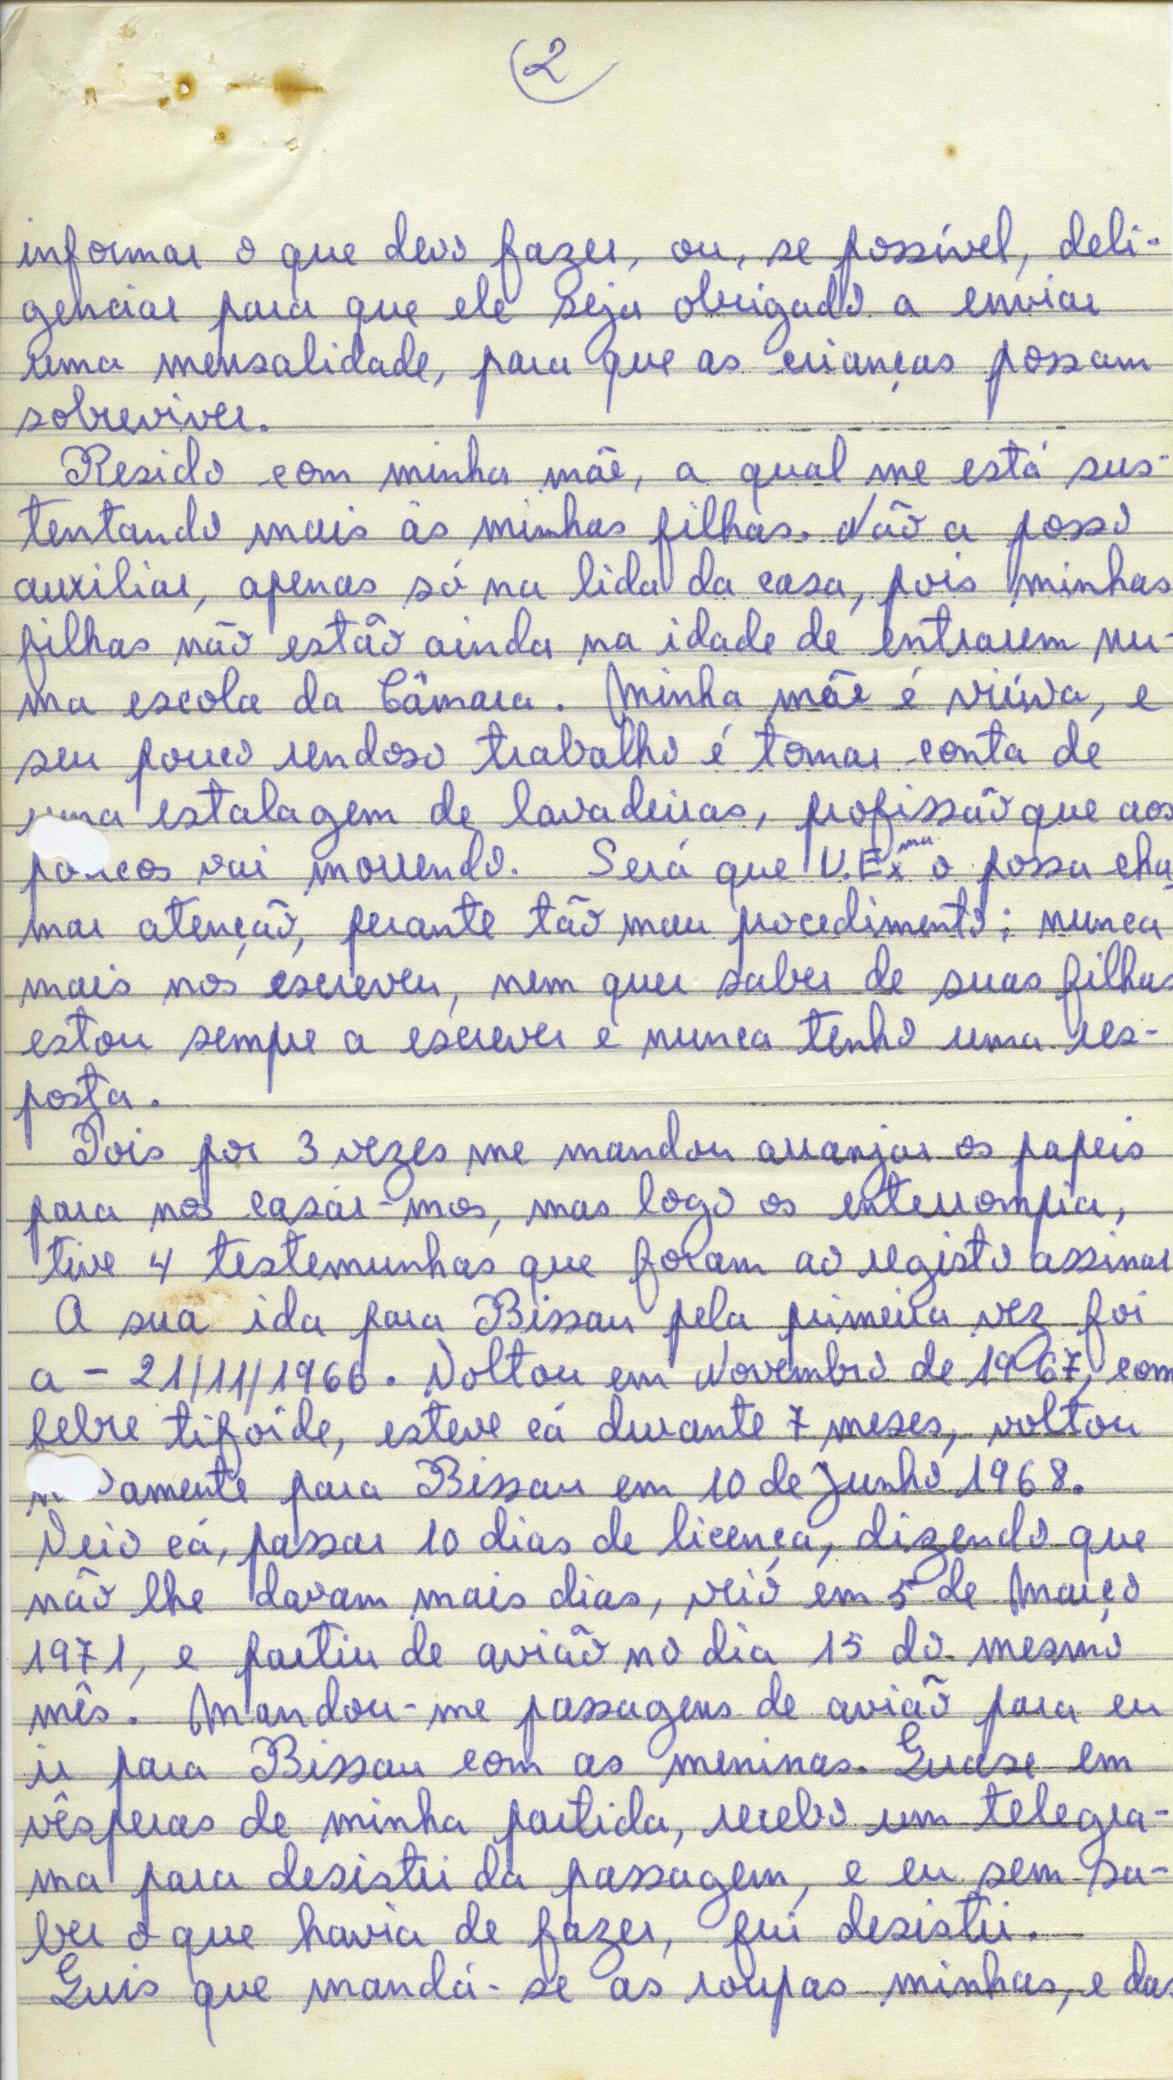 2
informar o que devo fazer, ou, se possível, deli-
genciar para que ele seja obrigado a enviar
uma mensalidade, para que as crianças possam
sobreviver.
Resido com minha mãe, a qual me está sus-
tentando mais às minhas filhas. Não a posso
auxiliar, apenas só na lida da casa, pois minhas
filhas não estão ainda na idade de entrarem nu-
ma escola da Câmara. Minha mãe é viúva, e
seu pouco rendoso trabalho é tomar conta de
uma estalagem de lavadeiras, profissão que aos
poucos vai morrendo. Será que V. Exma o possa cha
mar atenção, perante tão mau procedimento; nunca
mais nos escreveu, nem quer saber de suas filhas
estou sempre a escrever e nunca tenho uma res-
posta.
Pois por 3 vezes me mandou arranjar os papeis
para nos casár-mos, mas logo os enterrompia,
tive 4 testemunhas que foram ao registo assinar
A sua ida para Bissau pela primeira vez foi
a - 21/11/1966. Voltou em Novembro de 1967, com
febre tifoide, esteve cá durante 7 meses, voltou
novamente para Bissau em 10 de Junho 1968.
Veio cá, passar 10 dias de licença, dizendo que
não lhe davam mais dias, veio em 5 de Março
1971, e partiu de avião no dia 15 do mesmo
mês. Mandou-me passagens de avião para eu
ir para Bissau com as meninas. Quase em
vésperas de minha partida, recebo um telegra-
ma para desistir da passagem, e eu sem sa-
ber o que havia de fazer, fui desistir.
Quis que mandá-se as roupas minhas, e das